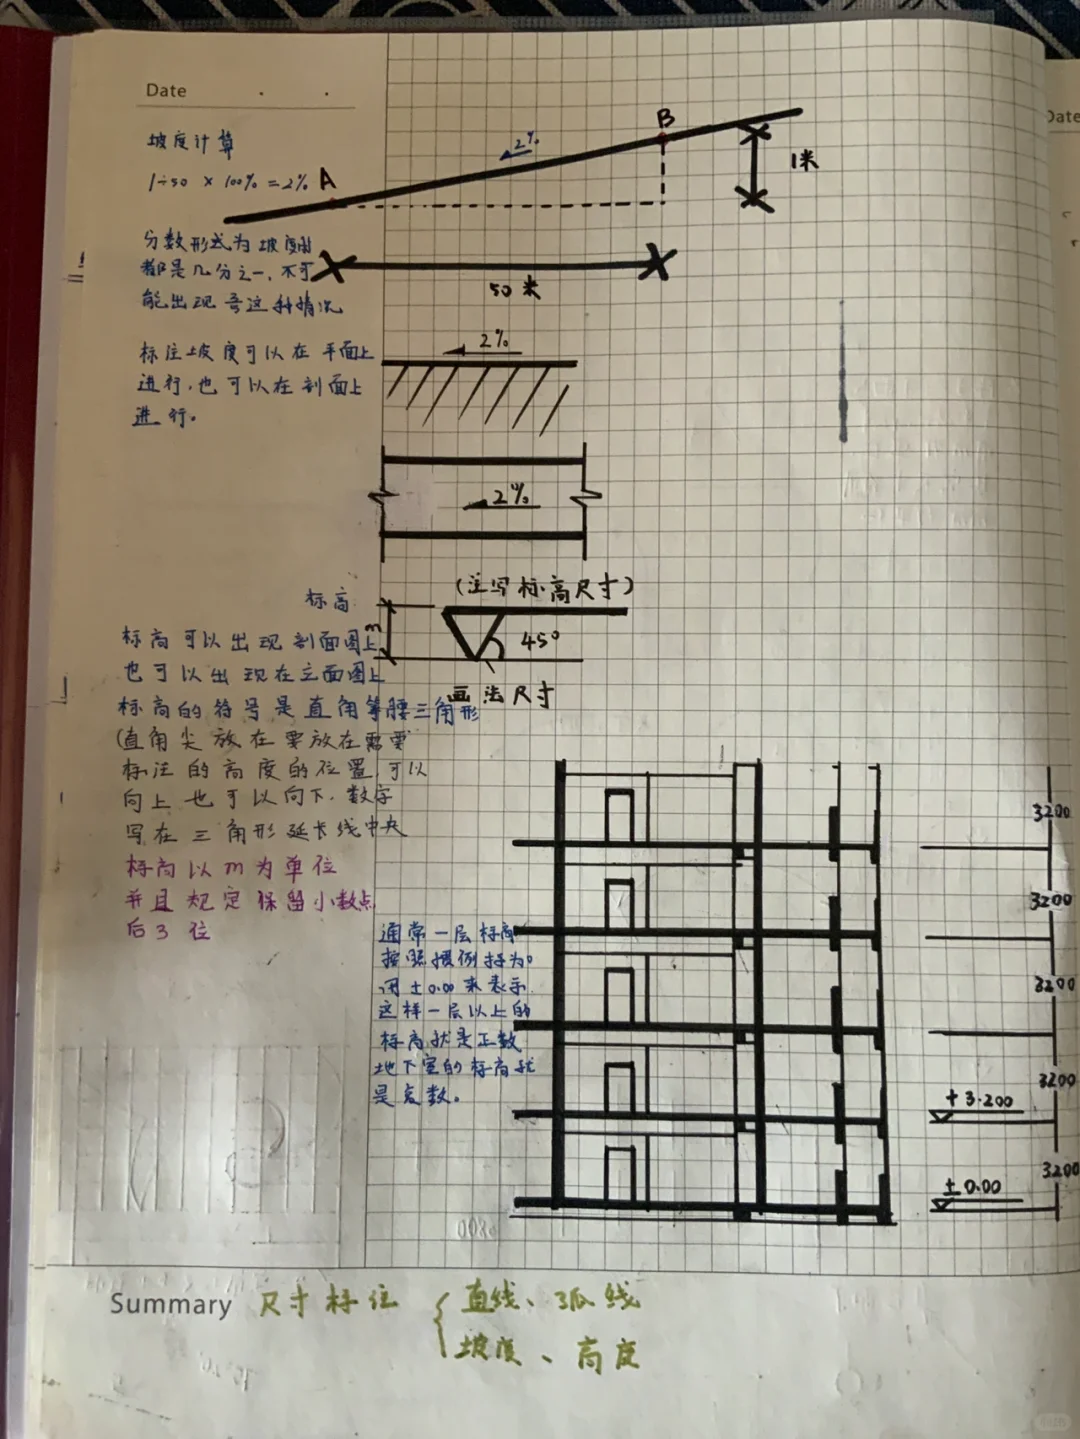 Date
坡度计算
1÷50 × 100% = 2%
分数形式为坡度时
都是几分之一，不可
能出现 这种情况
标注坡度可以在平面上
进行，也可以在剖面上
进行。
A
B
2%
1米
50米
2%
2%
标高
标高可以出现剖面图上
也可以出现在立面图上
标高的符号是直角等腰三角形
(直角尖放在要放在需要
标注的高度的位置，可以
向上也可以向下，数字
写在三角形延长线中央
标高以m为单位
并且规定保留小数点
后3位
(注写标高尺寸)
3
45°
画法尺寸
通常一层标高
按照惯例标为0
用±0.00来表示
这样一层以上的
标高就是正数
地下室的标高就
是负数。
3200
3200
3200
3200
+3.200
3200
±0.00
Summary 尺寸标注 { 直线、弧线
坡度、高度
Date